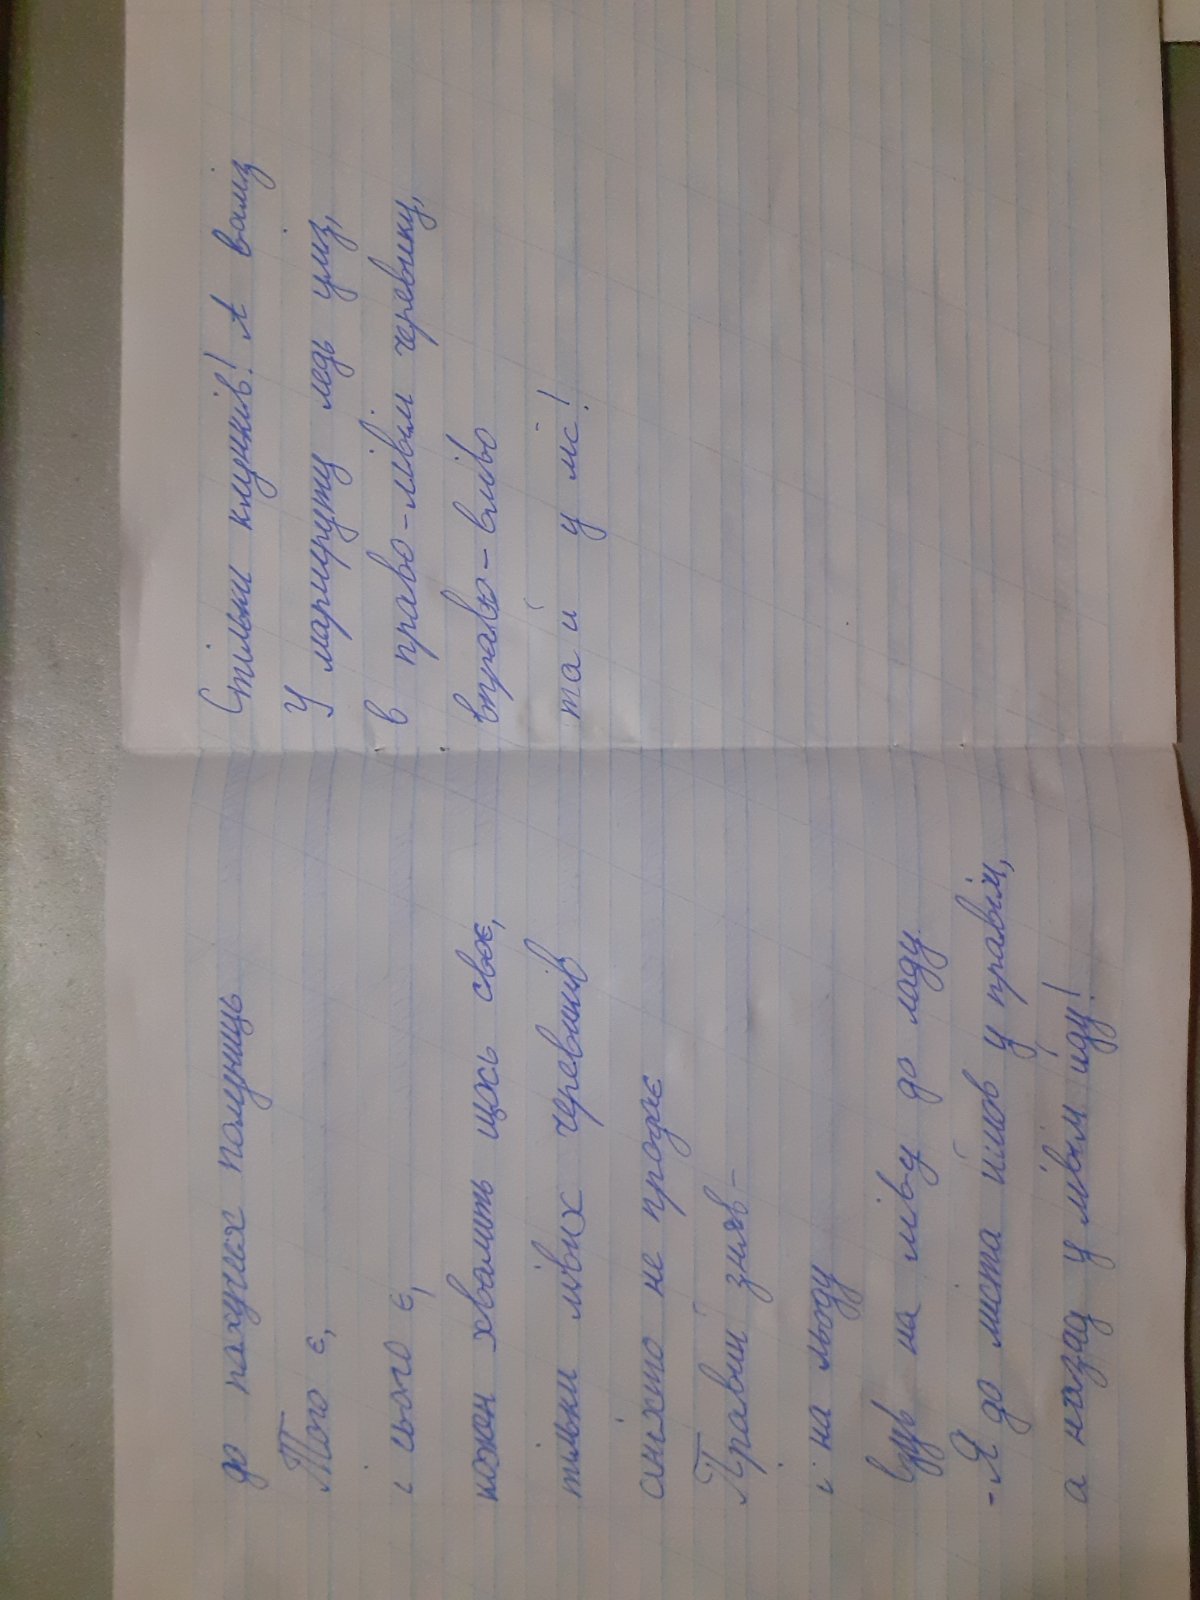 до пахучих полуниць
Того є,
і сього є,
кожен хвалить щось своє,
тільки лівих черевиків
аніхто не продає
Правий зняв -
і на льоду
взув на ліву до ладу.
- Я до міста йшов у правім,
а назад у лівім йду!
Стільки клунків! Аваліз
У маршрутку ледь уліз,
в право-лівім черевику,
вправо-вліво
та й у ліс!